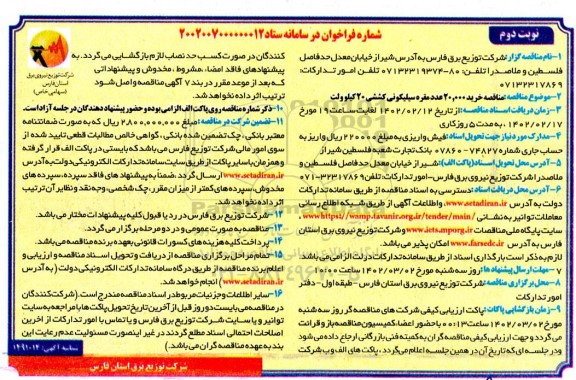 نوبت دوم
شماره فراخوان در سامانه ستاد ۲۰۰۲۰۰۷۰۰۰۰۰۰۱۲
شرکت توزیع نیروی برق
استان فارس
(سهامی خاص)
۱- نام مناقصه گزار: شرکت توزیع برق فارس به آدرس شیراز خیابان معدل حدفاصل
فلسطین و ملاصدرا تلفن: ۸۰-۰۷۱۳۲۳۱۹۳۷۴ تلفن امور تدارکات:
۰۷۱۳۲۳۱۷۸۶۹
۲- موضوع مناقصه: مناقصه خرید ۲۰,۰۰۰ عدد مقره سیلیکونی کششی ۲۰ کیلو ولت
۳- زمان دریافت اسناد مناقصه: از تاریخ ۱۴۰۲/۰۲/۱۲ لغایت ساعت ۱۹ مورخ
۱۴۰۲/۰۲/۱۷ به مدت ۵ روز کاری
۴- مدارک مورد نیاز جهت تحویل اسناد: فیش واریزی به مبلغ ۲۲۰۰۰۰ ریال واریز به
حساب جاری شماره ۰۷۸۶۰۰۷۴۸۲۷ بانک تجارت شعبه فلسطین شیراز
۵- آدرس محل تحویل اسناد (پاکت الف): شیراز خیابان معدل حدفاصل فلسطین و
ملاصدرا شرکت توزیع نیروی برق فارس- امور تدارکات: تلفن ۳۲۳۱۷۸۶۹-۰۷۱
۶- آدرس محل دریافت اسناد: دسترسی به اسناد مناقصه از طریق سامانه تدارکات
دولت به آدرس www.setadiran.ir و اطلاعات آگهی از طریق شبکه اطلاع رسانی
معاملات توانیر به نشانی https://wamp.tavanir.org.ir/tender/main/ و
سایت پایگاه ملی مناقصات www.iets.mporg.ir و شرکت توزیع نیروی برق استان
فارس به آدرس www.farsedc.ir امکان پذیر می باشد.
لازم به ذکر است بارگذاری اسناد از طریق سامانه تدارکات الکترونیکی دولت الزامی می باشد
۷- مهلت ارسال پیشنهاد ها: روز سه شنبه مورخ ۱۴۰۲/۰۳/۰۲ ساعت ۱۰:۰۰
۸- محل برگزاری مناقصه: شرکت توزیع نیروی برق استان فارس- طبقه اول- دفتر
امور تدارکات
۹- زمان بازگشایی پاکات: پاکت ارزیابی کیفی شرکت های مناقصه گر روز سه شنبه
مورخ ۱۴۰۲/۰۳/۰۲ ساعت ۱۳:۰۰ با حضور اعضا کمیسیون مناقصه باز و قرائت
می گردد و جهت ارزیابی کیفی مناقصه گران به کمیته فنی بازرگانی ارجاع داده می شود
و در جلسه ای که تاریخ آن در همین جلسه اعلام می گردد، پاکت های الف و ب شرکت
کنندگان در صورت کسب حد نصاب لازم بازگشایی می گردد. به
پیشنهادهای فاقد امضاء، مشروط، مخدوش و پیشنهاداتی
که بعد از موعد مقرر در بند ۷ آگهی مناقصه واصل شود
ترتیب اثر داده نخواهد شد.
۱۰- ذکر شماره مناقصه روی پاکت الف الزامی بوده و حضور پیشنهاد دهندگان در جلسه آزاد است.
۱۱- تضمین شرکت در مناقصه: مبلغ ۲,۸۰۰,۰۰۰,۰۰۰ ریال می باشد که به صورت ضمانتنامه
معتبر بانکی، چک تضمین شده بانکی، گواهی خالص مطالبات قطعی تایید شده از
سوی امور مالی شرکت توزیع فارس می باشد که بایستی در پاکت الف قرار گرفته
و همزمان با سایر پاکات از طریق سایت سامانه تدارکات الکترونیکی دولت به آدرس
www.setadiran.ir ارسال گردد. ضمناً به پیشنهاد های فاقد سپرده، سپرده های
مخدوش، سپرده های کمتر از میزان مقرر، چک شخصی، وجه نقد و نظایر آن ترتیب
اثر داده نخواهد شد.
۱۲- شرکت توزیع برق فارس در رد یا قبول کلیه پیشنهادات مختار می باشد.
۱۳- مناقصه به صورت عمومی و در دو مرحله برگزار می گردد.
۱۴- پرداخت کلیه هزینه های کسورات قانونی بعهده برنده مناقصه می باشد.
۱۵- تمام مراحل برگزاری مناقصه از دریافت و تحویل اسناد مناقصه و ارزیابی و
اعلام برنده مناقصه از طریق درگاه سامانه تدارکات الکترونیکی دولت (به آدرس
www.setadiran.ir) انجام خواهد شد.
۱۶- سایر اطلاعات و جزئیات مربوطه در اسناد مناقصه مندرج است. (شرکت کنندگان
در مناقصه می بایست دو روز قبل از آخرین تاریخ تحویل پاکت ها با مراجعه به سایت
توانیر و یا سایت شرکت توزیع برق فارس و یا تماس با امور تدارکات از آخرین
اصلاحات احتمالی اسناد مطلع گردند در غیر اینصورت مسئولیت عدم رعایت این
بند به عهده مناقصه گران می باشد.)
شناسه آگهی: ۱۴۹۱۰۱۲
شرکت توزیع برق استان فارس